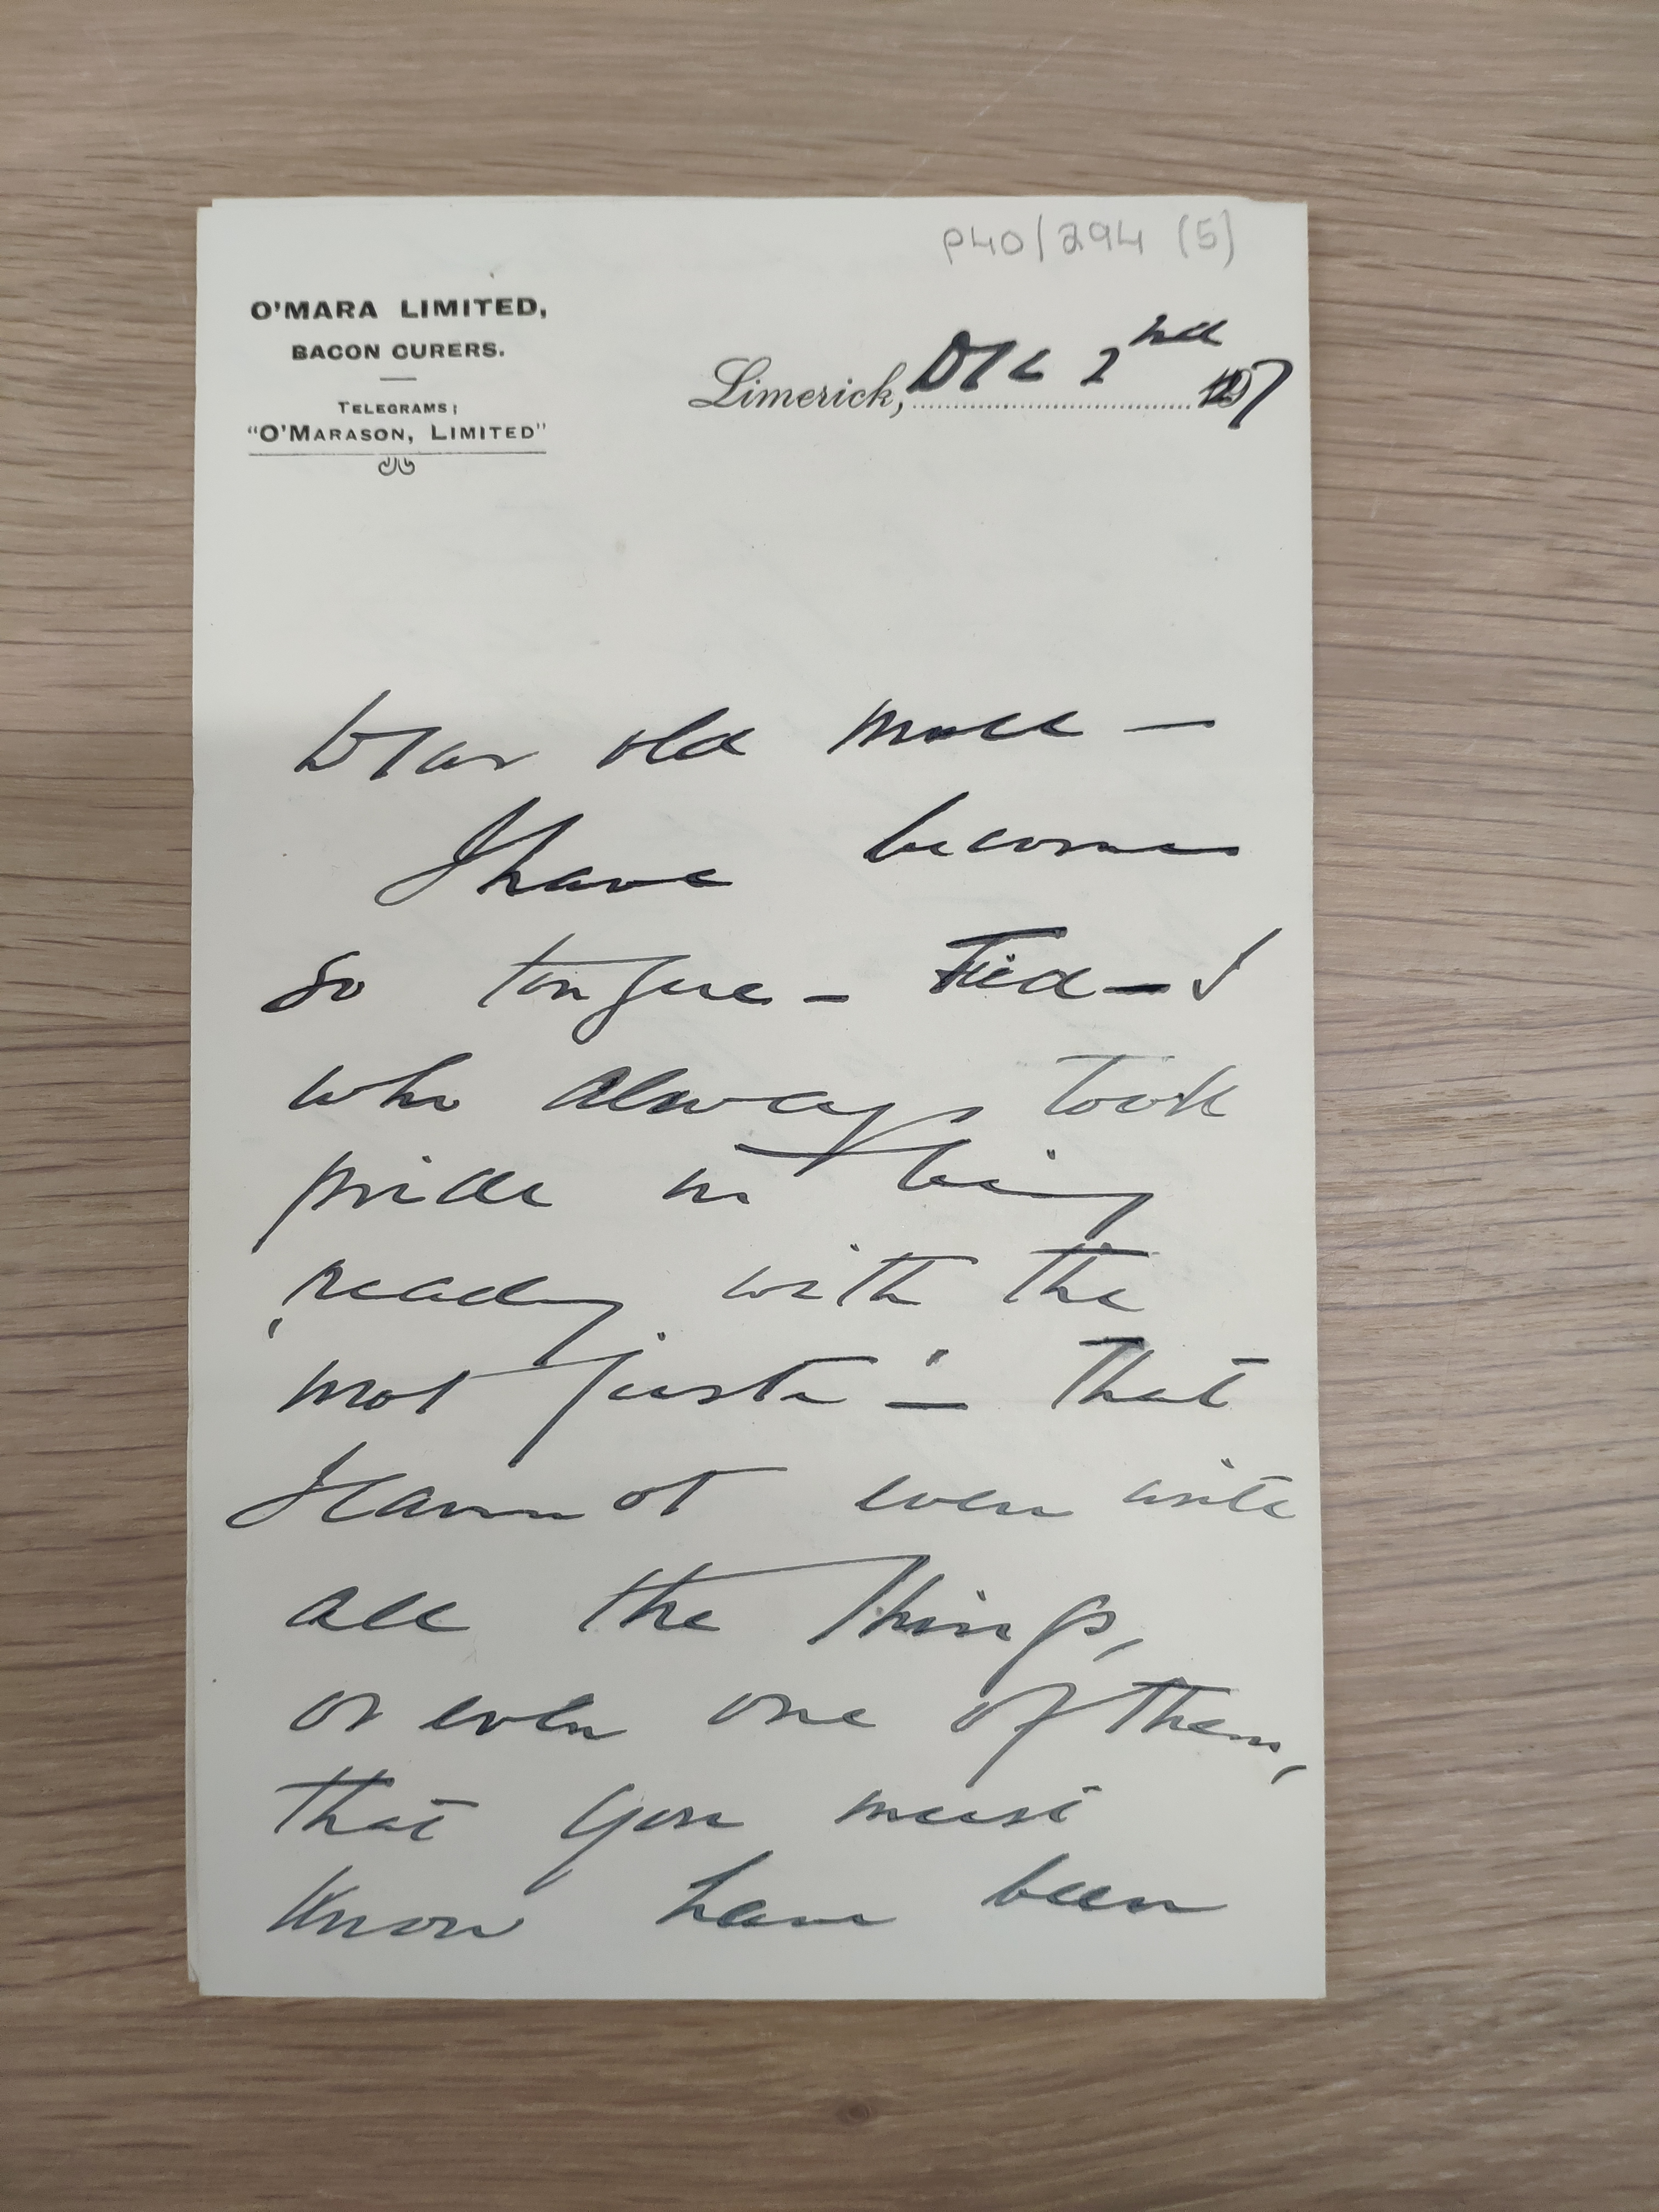 P40/294 (5)
O'MARA LIMITED,
BACON CURERS.
TELEGRAMS:
"O'MARASON, LIMITED"
Limerick, Dec 2nd
Dear old Moll —
I have become
so tongue - tied — I
who always took
pride in being
ready with the
'mot juste' — that
I cannot even write
all the things,
or even one of them,
that you must
know have been